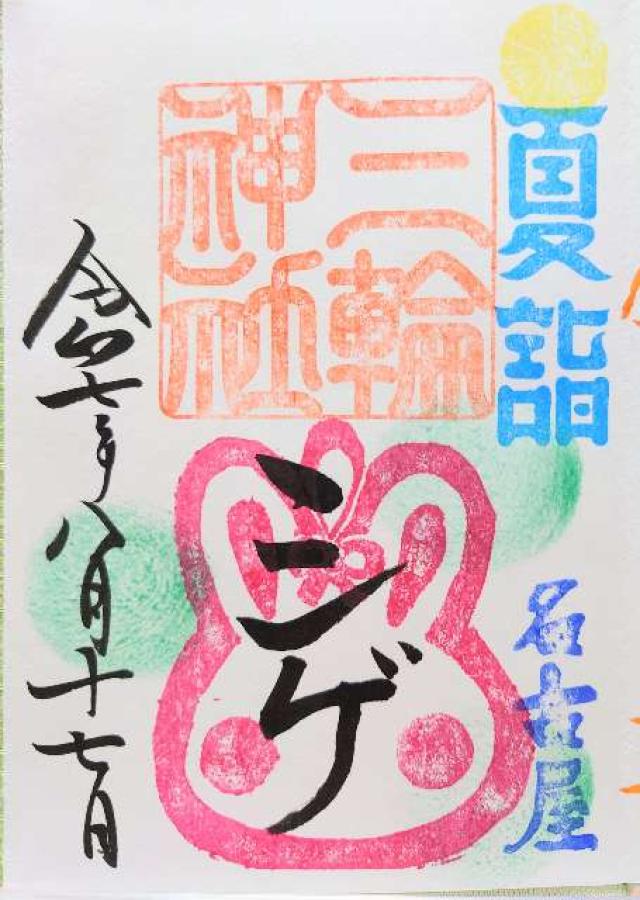 夏詣
名古屋
三輪
神社
シゲ
令和七年八月十七日